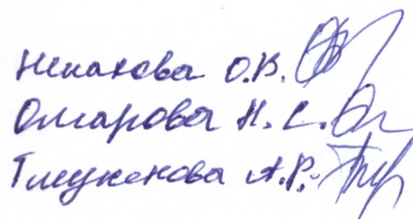 Ненахова О.В.
Омарова Н. С.
Тлеукенова А.Р.